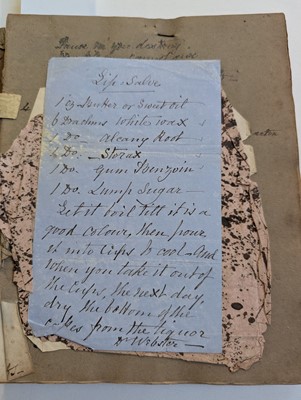 Lip Salve
1 oz Butter or Sweet oil
6 Drachms White wax
Do. Alcany Root
Do. Storax
1 Do. Gum Benzoin
1 Do. Lump Sugar
Let it boil till it is a
good colour, then pour
it into Cups to cool - And
when you take it out of
the Cups, the next day,
dry the bottom of the
from the liquor
Dr Webster